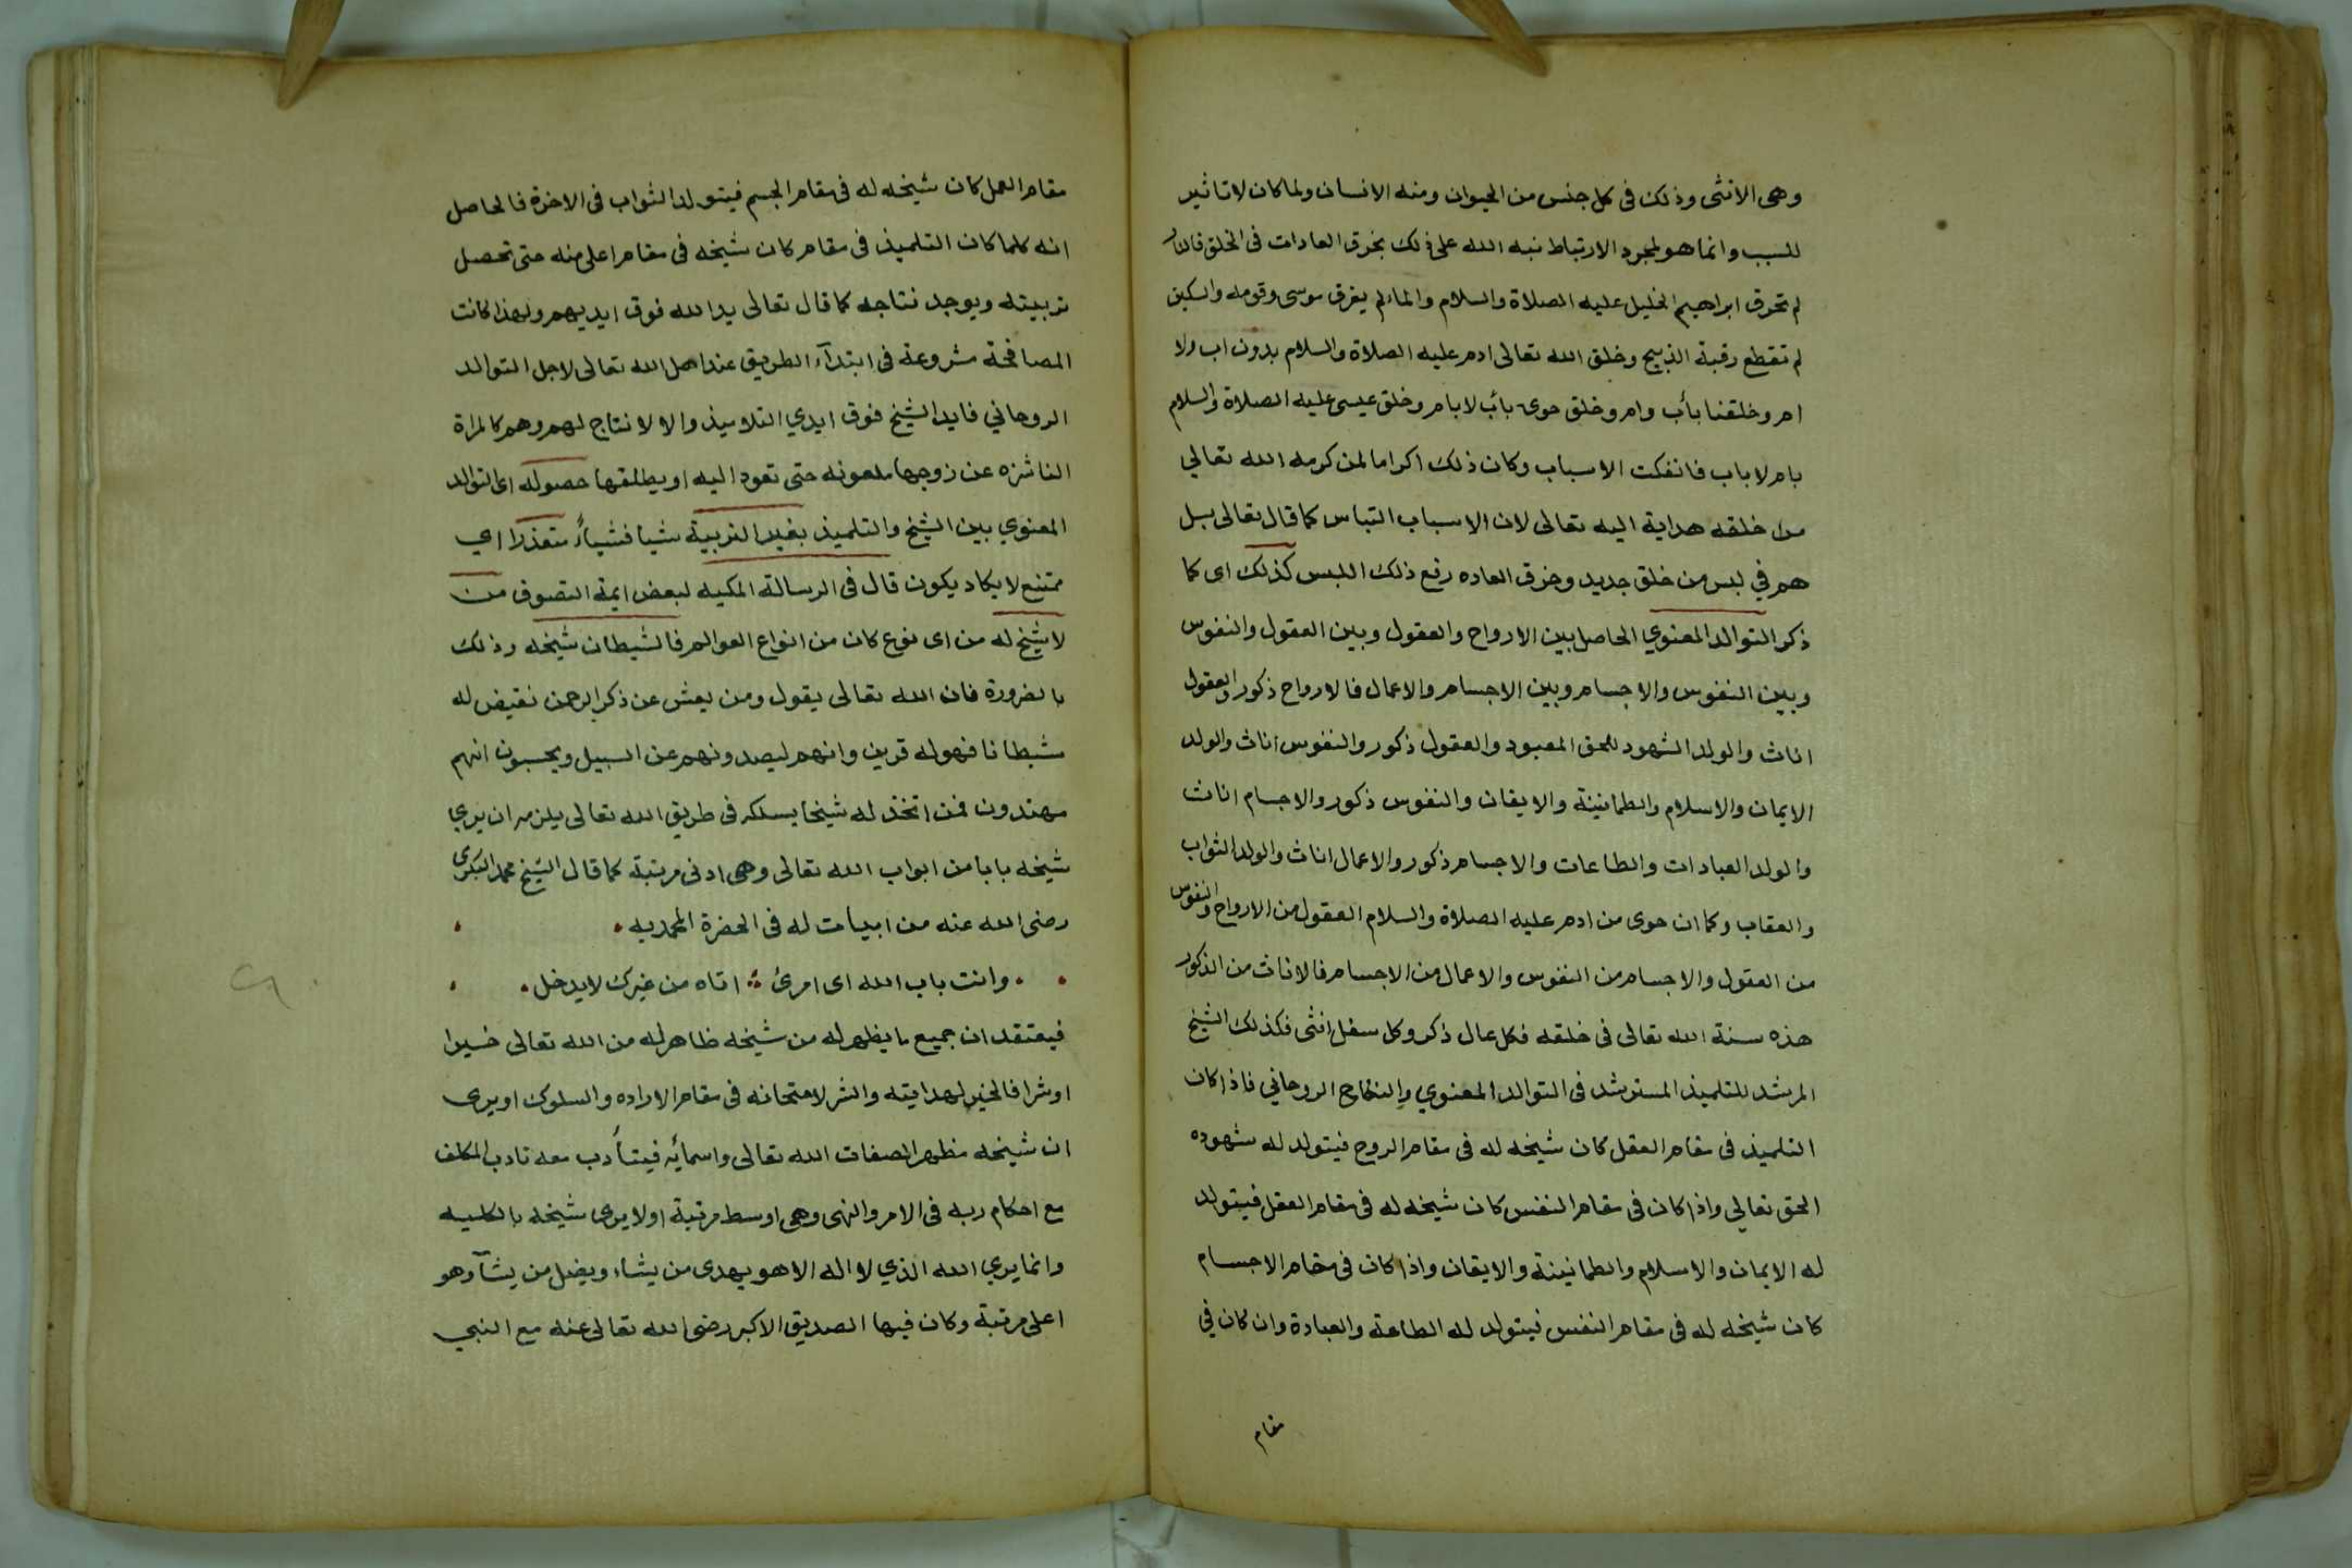 وهى الانثى وذلك فى كل جنس من الحيوان ومنه الانسان ولما كان لا تاثير
للسبب وانما هو لمجرد الارتباط نبه الله على ذلك بخرق العادات فى الخلق فالنار
لم تحرق ابراهيم الخليل عليه الصلاة والسلام والماء لم يغرق موسى وقومه والسكين
لم تقطع رقبة الذبيح وخلق الله تعالى ادم عليه الصلاة والسلام بدون اب ولا
ام وخلقنا بأب وام وخلق حوى بأب لا بام وخلق عيسى عليه الصلاة والسلام
بام لا باب فانفكت الاسباب وكان ذلك اكراما لمن كرمه الله تعالي
من خلقه هداية اليه تعالى لان الاسباب التباس كما قال تعالى بل
هم في لبس من خلق جديد وخرق العاده رفع ذلك اللبس كذلك اى كما
ذكر التوالد المعنوي الحاصل بين الارواح والعقول وبين العقول والنفوس
وبين النفوس والاجسام وبين الاجسام والاعمال فالارواح ذكور والعقول
اناث والولد الشهود للحق المعبود والعقول ذكور والنفوس اناث والولد
الايمان والاسلام والطمانينة والايقان والنفوس ذكور والاجسام اناث
والولد العبادات والطاعات والاجسام ذكور والاعمال اناث والولد الثواب
والعقاب وكما ان حوى من ادم عليه الصلاة والسلام العقول من الارواح والنفوس
من العقول والاجسام من النفوس والاعمال من الاجسام فالاناث من الذكور
هذه سنة الله تعالى فى خلقه فكل عال ذكر وكل سفل انثى فكذلك الشيخ
المرشد للتلميذ المسترشد فى التوالد المعنوي والنكاح الروحاني فاذا كان
التلميذ فى مقام العقل كان شيخه له فى مقام الروح فيتولد له شهوده
الحق تعالي واذا كان فى مقام النفس كان شيخه له فى مقام العقل فيتولد
له الايمان والاسلام والطمانينة والايقان واذا كان فى مقام الاجسام
كان شيخه له فى مقام النفس فيتولد له الطاعة والعبادة وان كان في
مقام
مقام العمل كان شيخه له فى مقام الجسم فيتولد الثواب فى الاخرة فالحاصل
انه كلما كان التلميذ فى مقام كان شيخه فى مقام اعلى منه حتى تحصل
تربيته ويوجد نتاجه كما قال تعالى يد الله فوق ايديهم ولهذا كانت
المصافحة مشروعة فى ابتدآء الطريق عند اهل الله تعالى لاجل التوالد
الروحاني فايد الشيخ فوق ايدي التلاميذ والا لا نتاج لهم وهم كالمراة
الناشزه عن زوجها ملعونه حتى تعود اليه او يطلقها حصوله اى التوالد
المعنوي بين الشيخ والتلميذ بغير التربية شيا فشياً متعذرا اي
ممتنع لا يكاد يكون قال فى الرسالة المكيه لبعض ايمة التصوف من
لا شيخ له من اى نوع كان من انواع العوالم فالشيطان شيخه وذلك
بالضرورة فان الله تعالى يقول ومن يعش عن ذكر الرحمن نقيض له
شيطانا فهو له قرين وانهم ليصدونهم عن السبيل ويحسبون انهم
مهتدون فمن اتخذ له شيخا يسلكه فى طريق الله تعالى يلزمه ان يري
شيخه بابا من ابواب الله تعالى وهى ادنى مرتبة كما قال الشيخ محمد البكرى
رضى الله عنه من ابيات له فى الحضرة المحمديه
وانت باب الله اى امرئ اتاه من غيرك لا يدخل
فيعتقد ان جميع ما يظهر له من شيخه ظاهر له من الله تعالى خيرا
او شرا فالخير لهدايته والشر لامتحانه فى مقام الاراده والسلوك او يرى
ان شيخه مظهر لصفات الله تعالى واسمائه فيتأدب معه تادب المكلف
مع احكام ربه فى الامر والنهى وهى اوسط مرتبة او لا يرى شيخه بالكليه
وانما يري الله الذي لا اله الا هو يهدى من يشاء ويضل من يشآ وهو
اعلى مرتبة وكان فيها الصديق الاكبر رضى الله تعالى عنه مع النبي